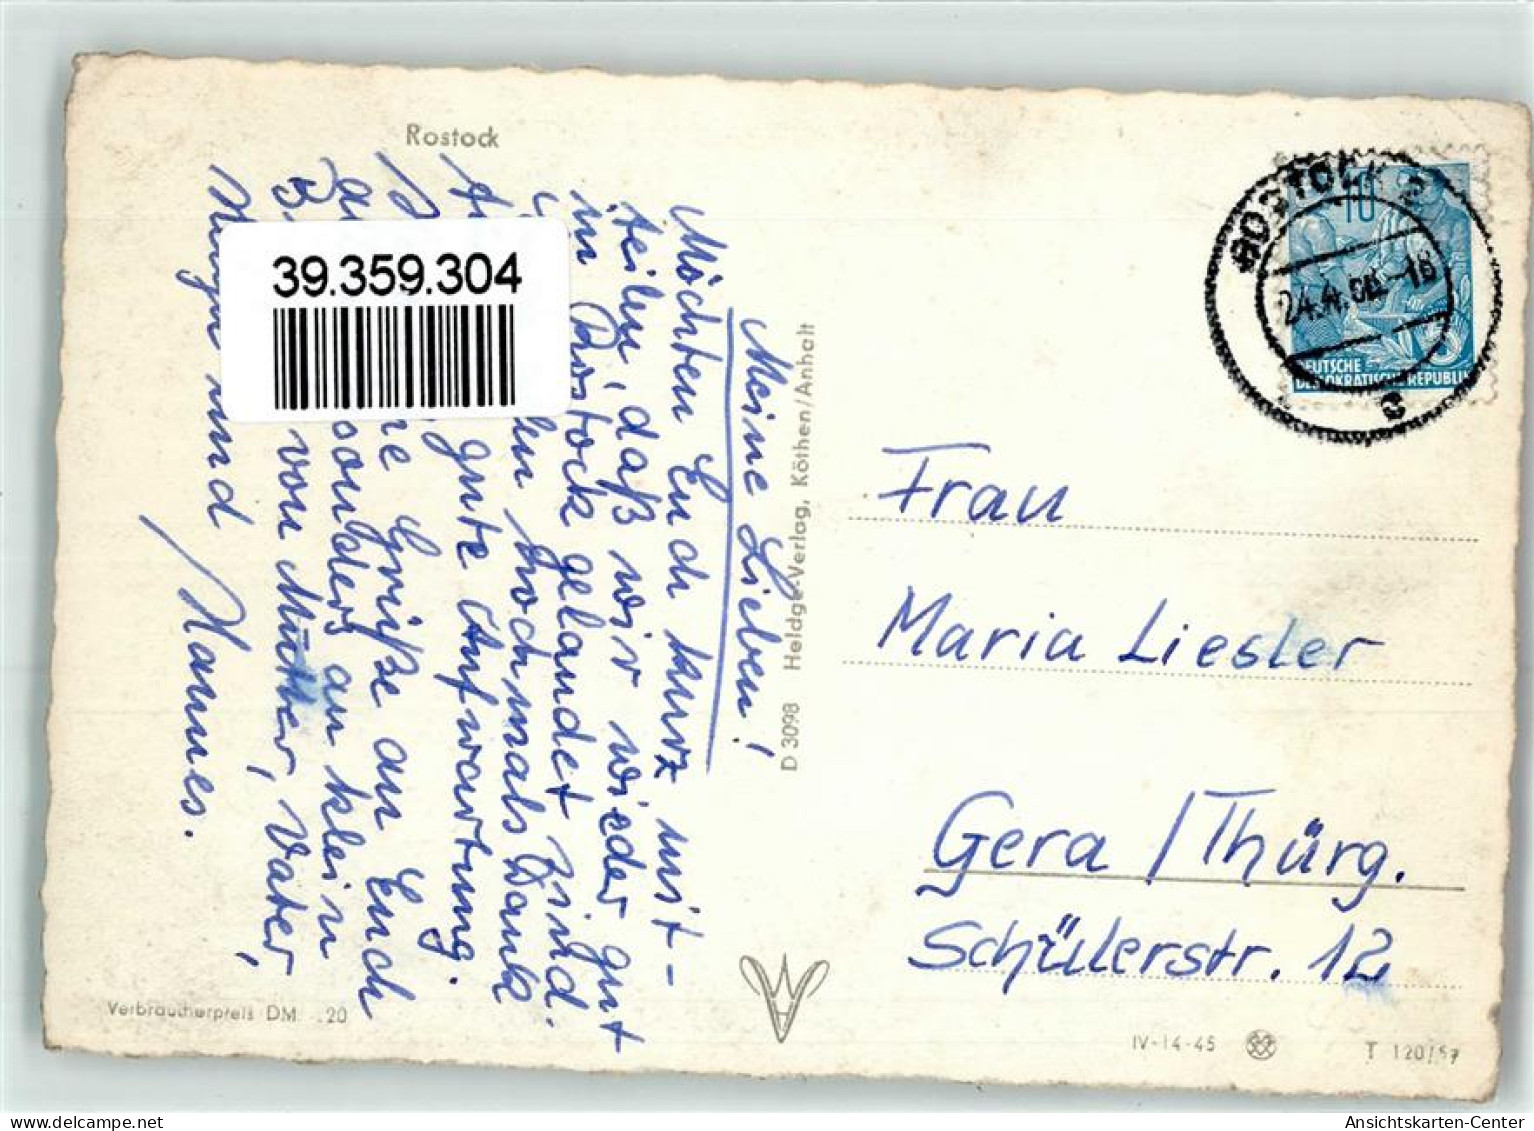 Rostock
39.359.304
Meine Lieben!
Möchten Euch kurz mit-
teilen, daß wir wieder gut
in Rostock gelandet sind.
hochmals Dank
gute Aufwartung.
Grüße an Euch
sonders an klein
B. von Mutter, Vater,
und
Hannes.
D 3098 Heldge-Verlag, Köthen/Anhalt
ROSTOCK 2
24.4.58.-18
c
10
DEUTSCHE
DEMOKRATISCHE REPUBLIK
Frau
Maria Liesler
Gera / Thürg.
Schülerstr. 12
Verbraucherpreis DM .20
IV-14-45
T 120/57
Ansichtskarten-Center